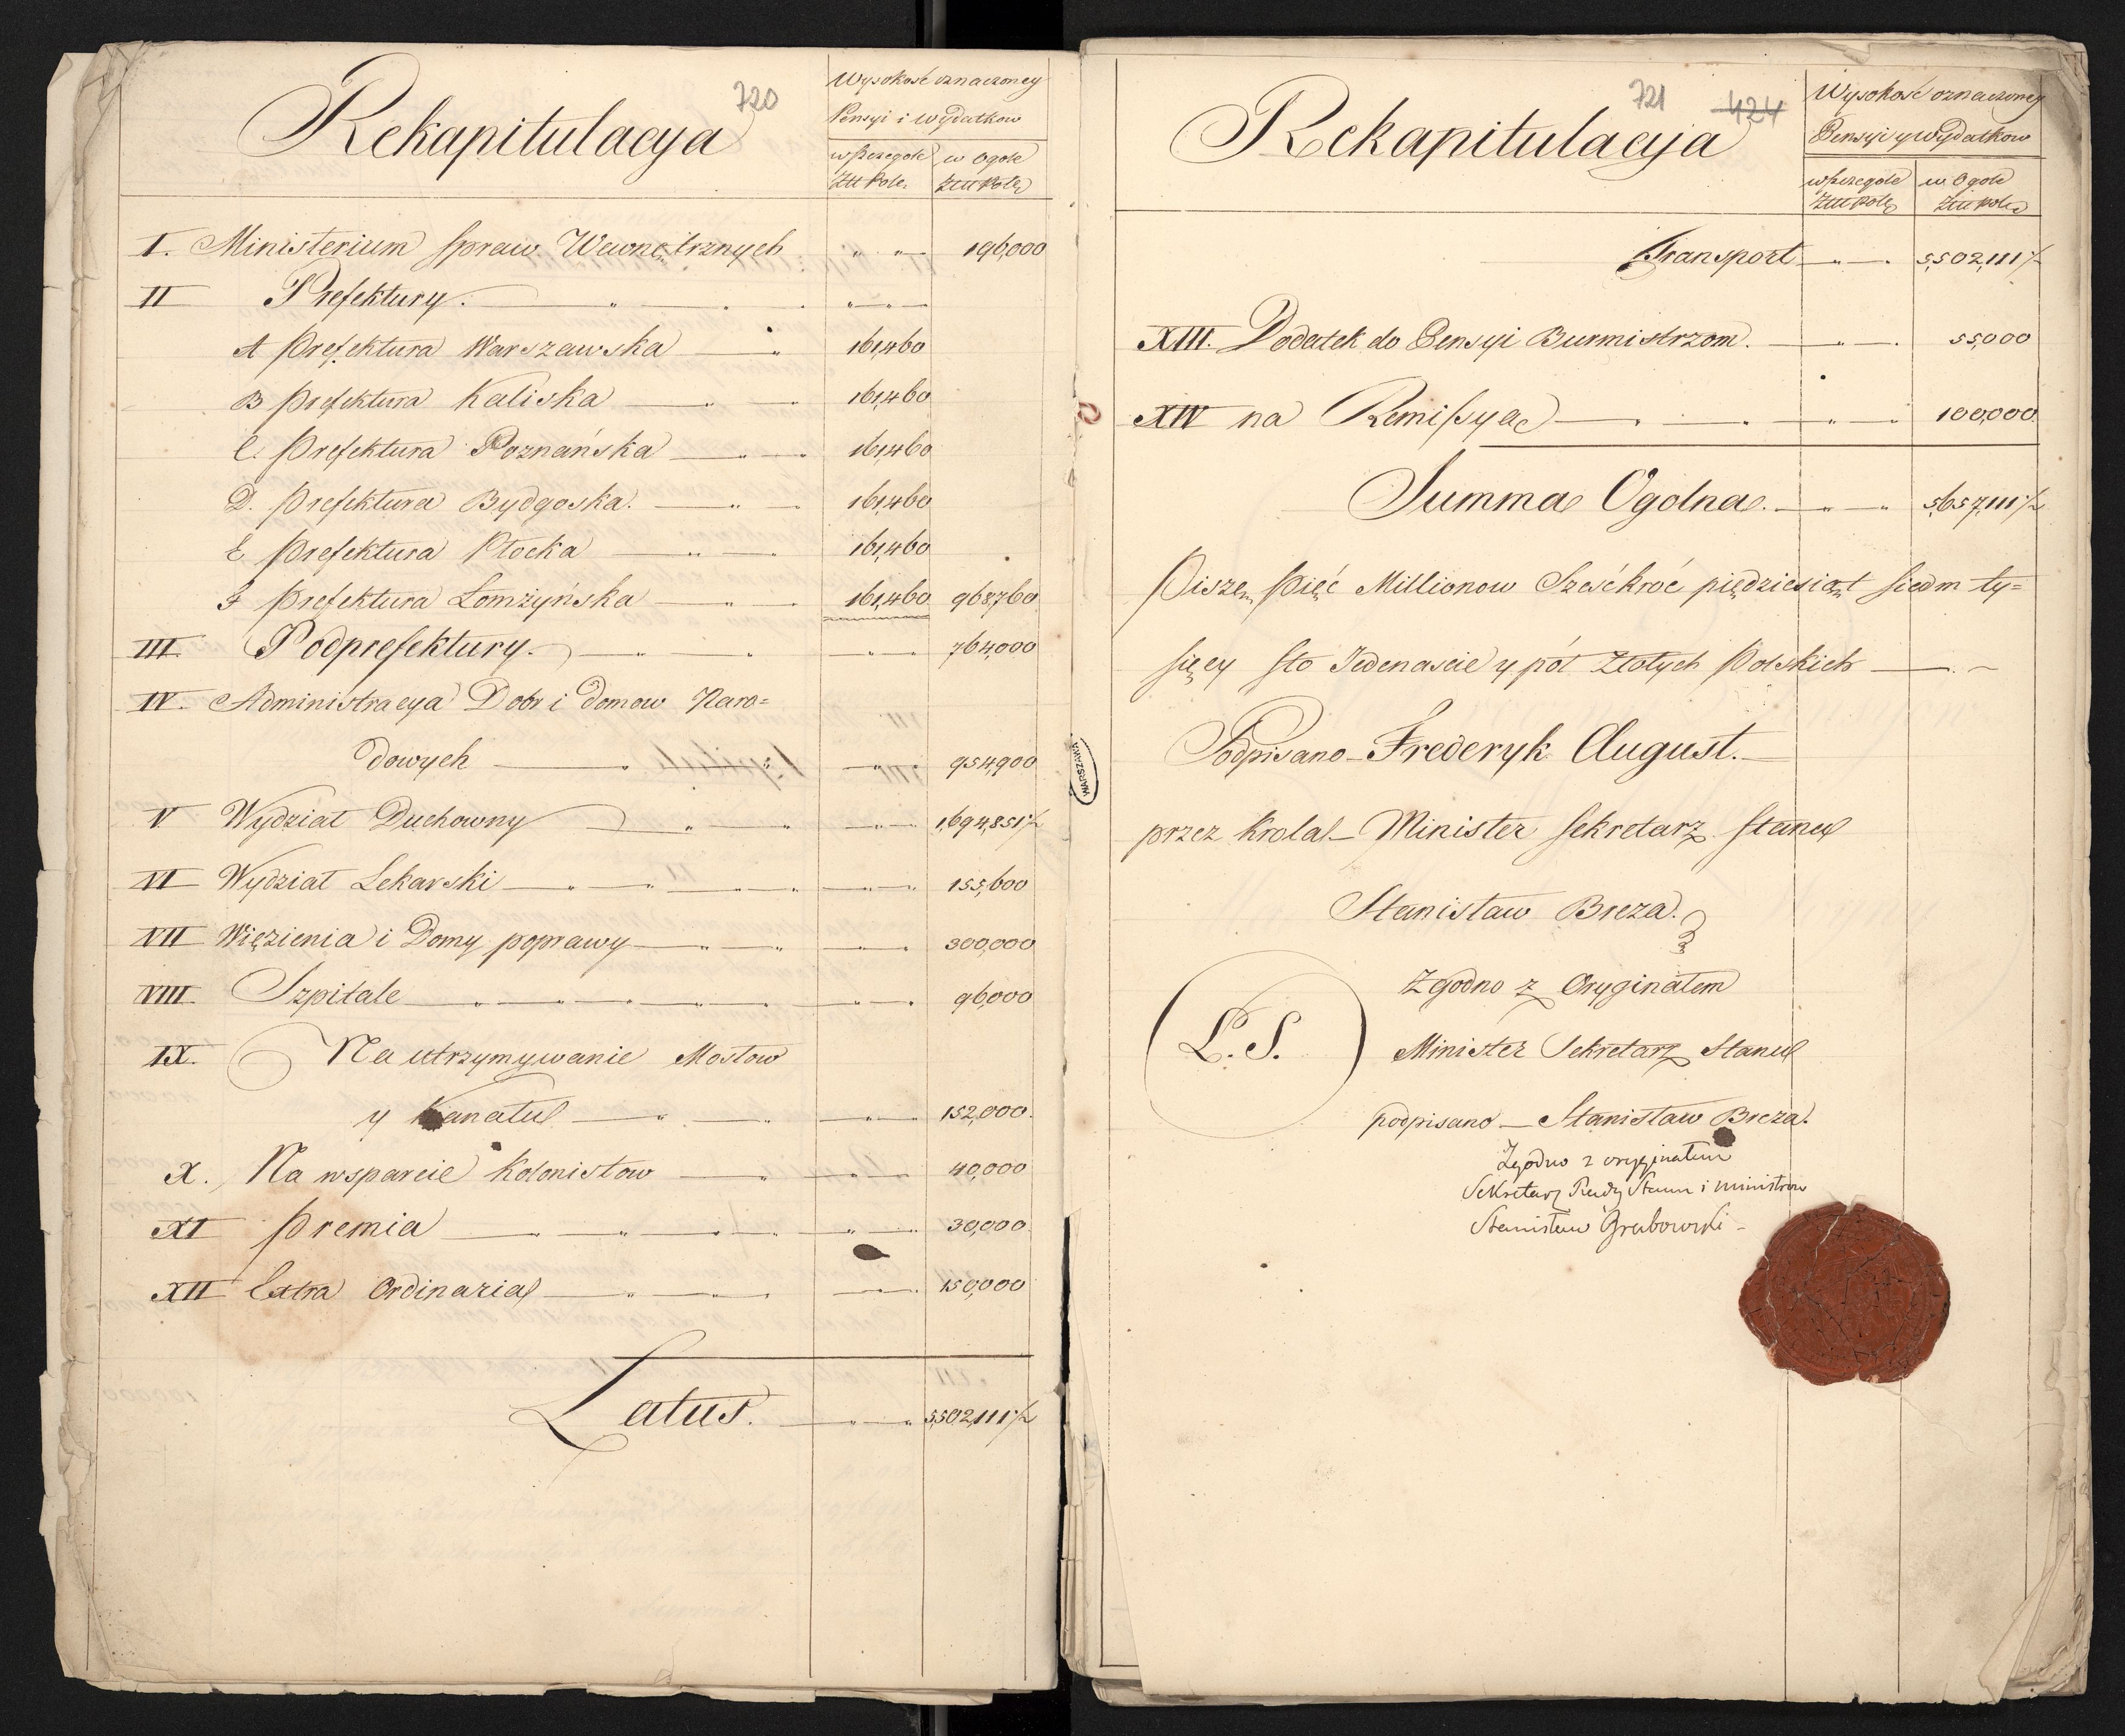 720
Rekapitulacya
Wysokosć oznaczoney
Pensyi i Wydatkow
w szczegole
w Ogole
Złł Pols.
złł Pols
I. Ministerium Spraw Wewnętrznych " " 196,000
II Prefektury. " "
A Prefektura Warszawska " 161,460
B Prefektura Kaliska " 161,460
C. Prefektura Poznańska " 161,460
D. Prefektura Bydgoska. " 161,460
E Prefektura Płocka " 161,460
F Prefektura Łomżyńska " 161,460 968,760
III. Podprefektury. " 764,000
IV. Administracya Dobr i Domow Naro=
dowych " 954,900
V Wydział Duchowny " 1,694,851½
VI Wydział Lekarski " 155,600
VII Więzienia i Domy poprawy " 300,000
VIII Szpitale " 96,000
IX. Na utrzymywanie Mostow
y Kanału " 152,000.
X. Na wsparcie Kolonistow " 40,000
XI Premia " 30,000
XII Extra Ordinaria " 150,000
Latus. " " 5,502,111½
721 424
Rekapitulacyja
Wysokość oznaczoney
Pensyi y Wydatkow
w szczegole
w Ogole
Złł Pols
Złł Pols
Transport " 5,502,111½
XIII. Dodatek do Pensyi Burmistrzom. " 55,000
XIV na Remissya " 100,000.
Summa Ogolna. " " 5,657,111½
Piszę Pięć Millionow Sześćkroć piędziesiąt siedm ty=
sięcy sto Jedenascie y pół Złotych Polskich
Podpisano Frederyk August.
przez Krola Minister Sekretarz Stanu
Stanisław Breza.
Zgodno z Oryginałem
L. S.
Minister Sekretarz Stanu
podpisano Stanisław Breza.
Zgodno z oryginałem
Sekretarz Rady Stanu i ministrow
Stanisław Grabowski
WARSZAWA